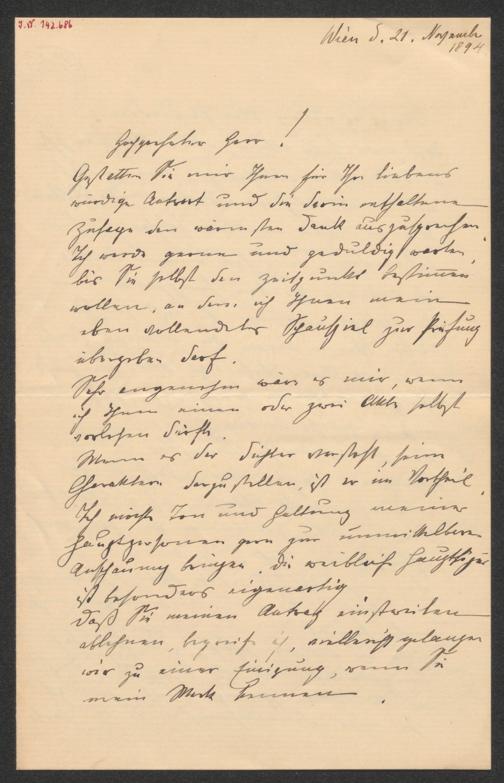 J.N. 142.686
Wien d. 21. November
1894
Hochgeehrter Herr!
Gestatten Sie mir Ihnen für Ihre liebens
würdige Antwort und die darin enthaltene
Zusage den wärmsten Dank auszusprechen.
Ich werde gerne und geduldig warten,
bis Sie selbst den Zeitpunkt bestimmen
wollen, an dem ich Ihnen mein
eben vollendetes Schauspiel zur Prüfung
übergeben darf.
Sehr angenehm wäre es mir, wenn
ich Ihnen einen oder zwei Akte selbst
vorlesen dürfte.
Wenn es der Dichter versteht, seine
Charaktere darzustellen, ist er im Vortheil.
Ich möchte Ton und Haltung meiner
Hauptpersonen gern zur unmittelbaren
Anschauung bringen, die weibliche Hauptfigur
ist besonders eigenartig
Daß Sie meinen Antrag einstweilen
ablehnen, begreife ich, vielleicht gelangen
wir zu einer Einigung, wenn Sie
mein Werk kennen.